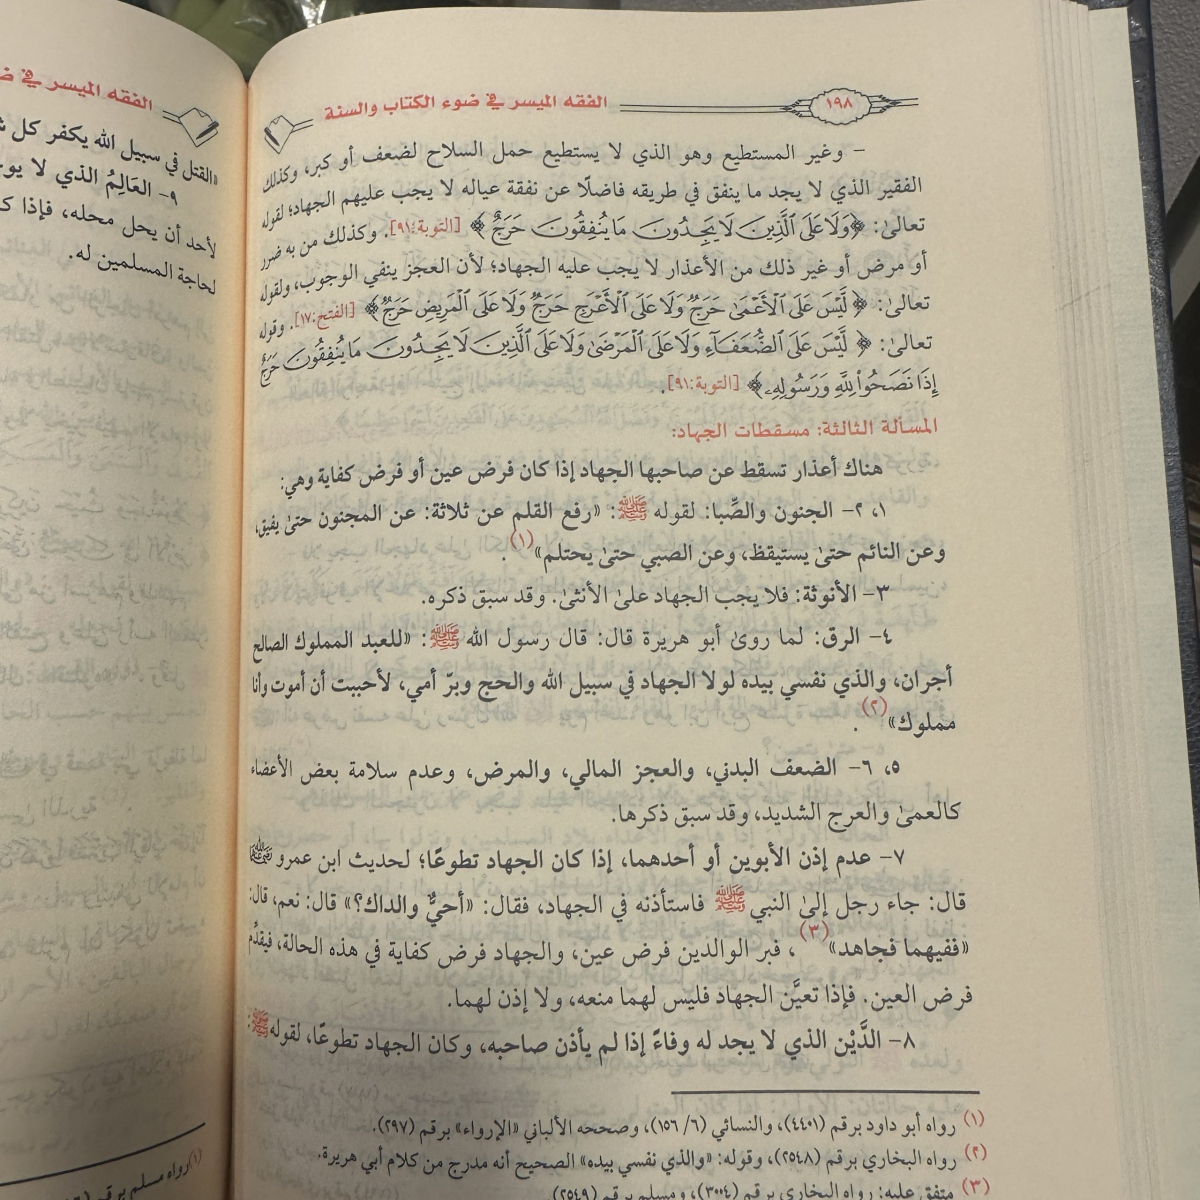 ١٩٨
الفقه الميسر في ضوء الكتاب والسنة
– وغير المستطيع وهو الذي لا يستطيع حمل السلاح لضعف أو كبر، وكذلك
الفقير الذي لا يجد ما ينفق في طريقه فاضلًا عن نفقة عياله لا يجب عليهم الجهاد؛ لقوله
تعالىٰ: ﴿وَلَا عَلَى ٱلَّذِينَ لَا يَجِدُونَ مَا يُنفِقُونَ حَرَجٌ﴾ [التوبة:٩١]. وكذلك من به ضرر
أو مرض أو غير ذلك من الأعذار لا يجب عليه الجهاد؛ لأن العجز ينفي الوجوب، ولقوله
تعالىٰ: ﴿لَّيْسَ عَلَى ٱلْأَعْمَىٰ حَرَجٌ وَلَا عَلَى ٱلْأَعْرَجِ حَرَجٌ وَلَا عَلَى ٱلْمَرِيضِ حَرَجٌ﴾ [الفتح:١٧]. وقوله
تعالىٰ: ﴿لَّيْسَ عَلَى ٱلضُّعَفَآءِ وَلَا عَلَى ٱلْمَرْضَىٰ وَلَا عَلَى ٱلَّذِينَ لَا يَجِدُونَ مَا يُنفِقُونَ حَرَجٌ
إِذَا نَصَحُوا۟ لِلَّهِ وَرَسُولِهِۦ﴾ [التوبة:٩١].
المسألة الثالثة: مسقطات الجهاد:
هناك أعذار تسقط عن صاحبها الجهاد إذا كان فرض عين أو فرض كفاية وهي:
١، ٢– الجنون والصِّبا: لقوله ﷺ: «رفع القلم عن ثلاثة: عن المجنون حتىٰ يفيق،
وعن النائم حتىٰ يستيقظ، وعن الصبي حتىٰ يحتلم»(١).
٣– الأنوثة: فلا يجب الجهاد علىٰ الأنثىٰ. وقد سبق ذكره.
٤– الرق: لما روىٰ أبو هريرة قال: قال رسول الله ﷺ: «للعبد المملوك الصالح
أجران، والذي نفسي بيده لولا الجهاد في سبيل الله والحج وبرّ أمي، لأحببت أن أموت وأنا
مملوك»(٢).
٥، ٦– الضعف البدني، والعجز المالي، والمرض، وعدم سلامة بعض الأعضاء
كالعمىٰ والعرج الشديد، وقد سبق ذكرها.
٧– عدم إذن الأبوين أو أحدهما، إذا كان الجهاد تطوعًا؛ لحديث ابن عمرو
قال: جاء رجل إلىٰ النبي ﷺ فاستأذنه في الجهاد، فقال: «أحيٌّ والداك؟» قال: نعم، قال:
«ففيهما فجاهد»(٣)، فبر الوالدين فرض عين، والجهاد فرض كفاية في هذه الحالة، فيقدَّم
فرض العين. فإذا تعيَّن الجهاد فليس لهما منعه، ولا إذن لهما.
٨– الدَّيْن الذي لا يجد له وفاءً إذا لم يأذن صاحبه، وكان الجهاد تطوعًا، لقوله ﷺ:
(١) رواه أبو داود برقم (٤٤٠١)، والنسائي (٦/ ١٥٦)، وصححه الألباني «الإرواء» برقم (٢٩٧).
(٢) رواه البخاري برقم (٢٥٤٨)، وقوله: «والذي نفسي بيده» الصحيح أنه مدرج من كلام أبي هريرة.
(٣) متفق عليه: رواه البخاري برقم (٣٠٠٤)، ومسلم برقم (٢٥٤٩).
الفقه الميسر في
«القتل في سبيل الله يكفر كل
٩– العَالِمُ الذي لا
لأحد أن يحل محله، فإذا
لحاجة المسلمين له.
(١) رواه مسلم برقم